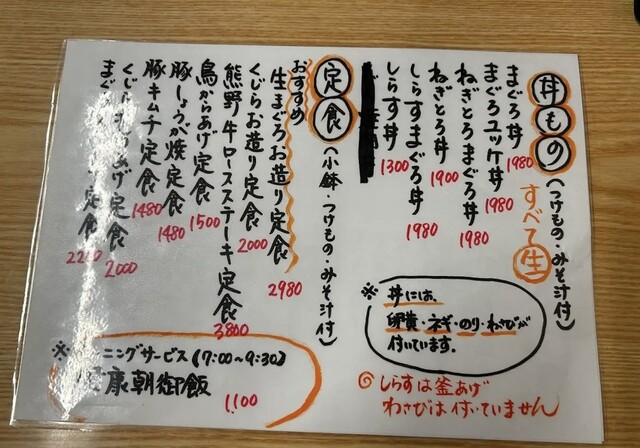 丼もの(つけもの・みそ汁付)
すべて生
まぐろ丼 1980
まぐろユッケ丼 1980
ねぎとろまぐろ丼 1980
ねぎとろ丼 1900
しらすまぐろ丼 1980
しらす丼 1300
※丼には、
卵黄・ネギ・のり・わさびが
付いています。
◎しらすは釜あげ
わさびは付いていません
定食(小鉢・つけもの・みそ汁付)
おすすめ
生まぐろお造り定食 2980
くじらお造り定食 2000
熊野牛ロースステーキ定食 3800
鳥からあげ定食 1500
豚しょうが焼定食 1480
豚キムチ定食 1480
くじら あげ定食 2000
まぐろ 定食
※ ニングサービス(7:00~9:30)
康朝御飯
1,100